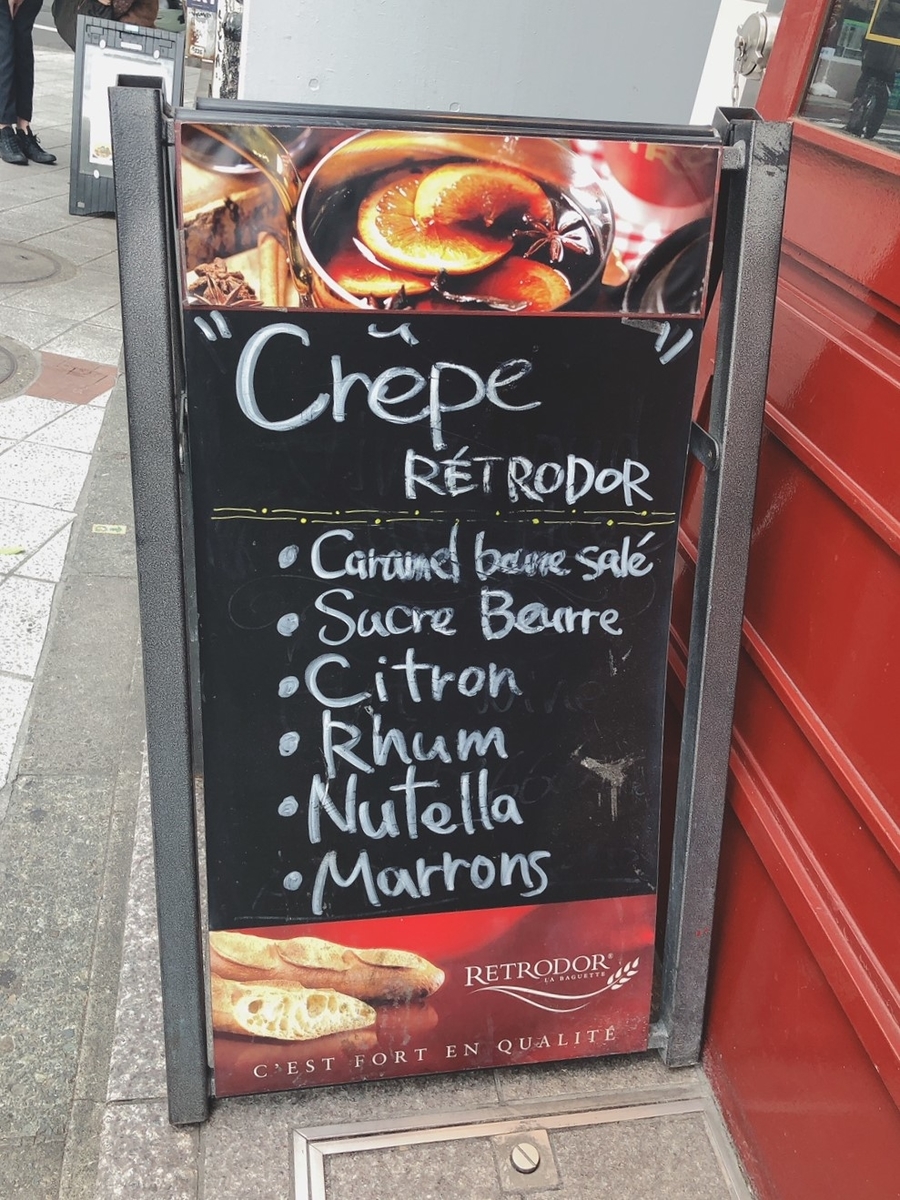 "Crêpe"
RÉTRODOR
• Caramel beurre salé
• Sucre Beurre
• Citron
• Rhum
• Nutella
• Marrons
RETRODOR®
LA BAGUETTE
C'EST FORT EN QUALITÉ